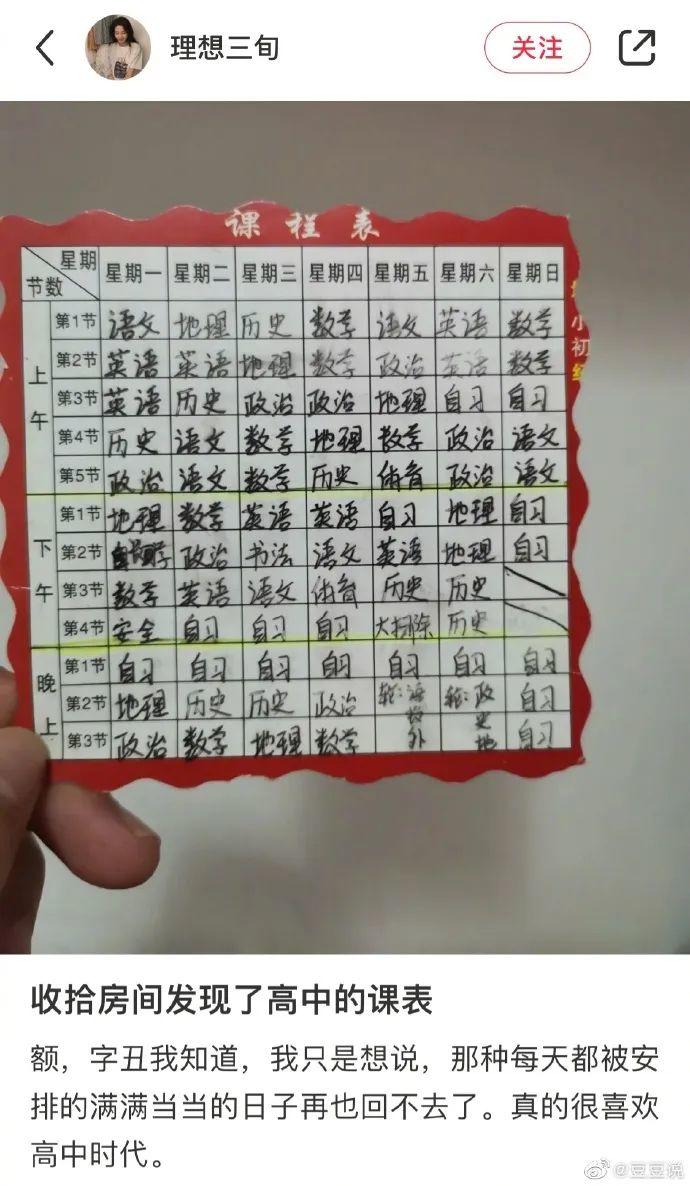 理想三旬
关注
课程表
星期 星期一 星期二 星期三 星期四 星期五 星期六 星期日
节数
上午
第1节 语文 地理 历史 数学 语文 英语 数学
第2节 英语 英语 地理 数学 政治 英语 数学
第3节 英语 历史 政治 政治 地理 自习 自习
第4节 历史 语文 数学 地理 数学 政治 语文
第5节 政治 语文 数学 历史 体育 政治 语文
下午
第1节 地理 数学 英语 英语 自习 地理 自习
第2节 政治 书法 语文 英语 地理 自习
第3节 数学 英语 语文 体育 历史 历史
第4节 安全 自习 自习 自习 大扫除 历史
晚上
第1节 自习 自习 自习 自习 自习 自习 自习
第2节 地理 历史 历史 政治 轮: 数 外 轮: 政 史 地 自习
第3节 政治 数学 地理 数学 自习
小初
收拾房间发现了高中的课表
额，字丑我知道，我只是想说，那种每天都被安
排的满满当当的日子再也回不去了。真的很喜欢
高中时代。
@豆豆说